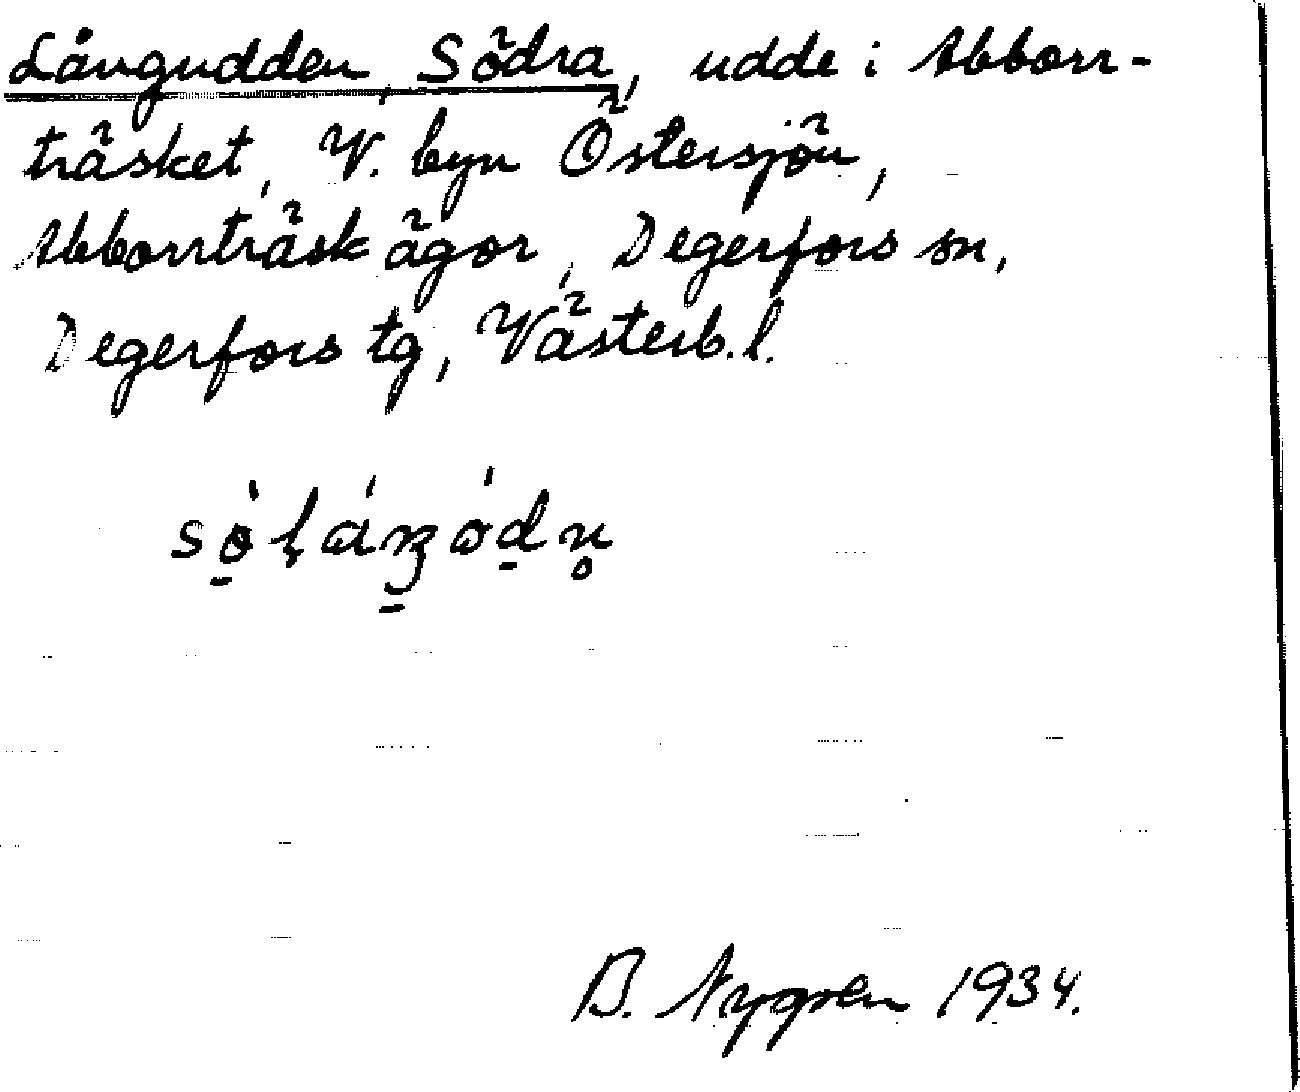 Långudden, Södra, udde i Abborr-
träsket, V. byn Östersjön,
Abborrträsk ägor, Degerfors sn,
Degerfors tg, Västerb. l.
B. Nygren 1934.